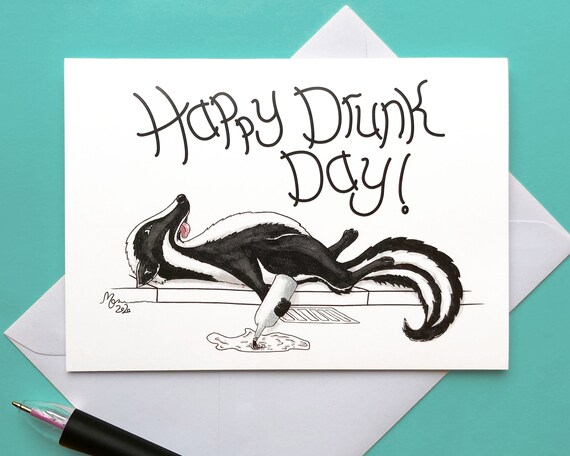 Happy Drunk
Day!
2020